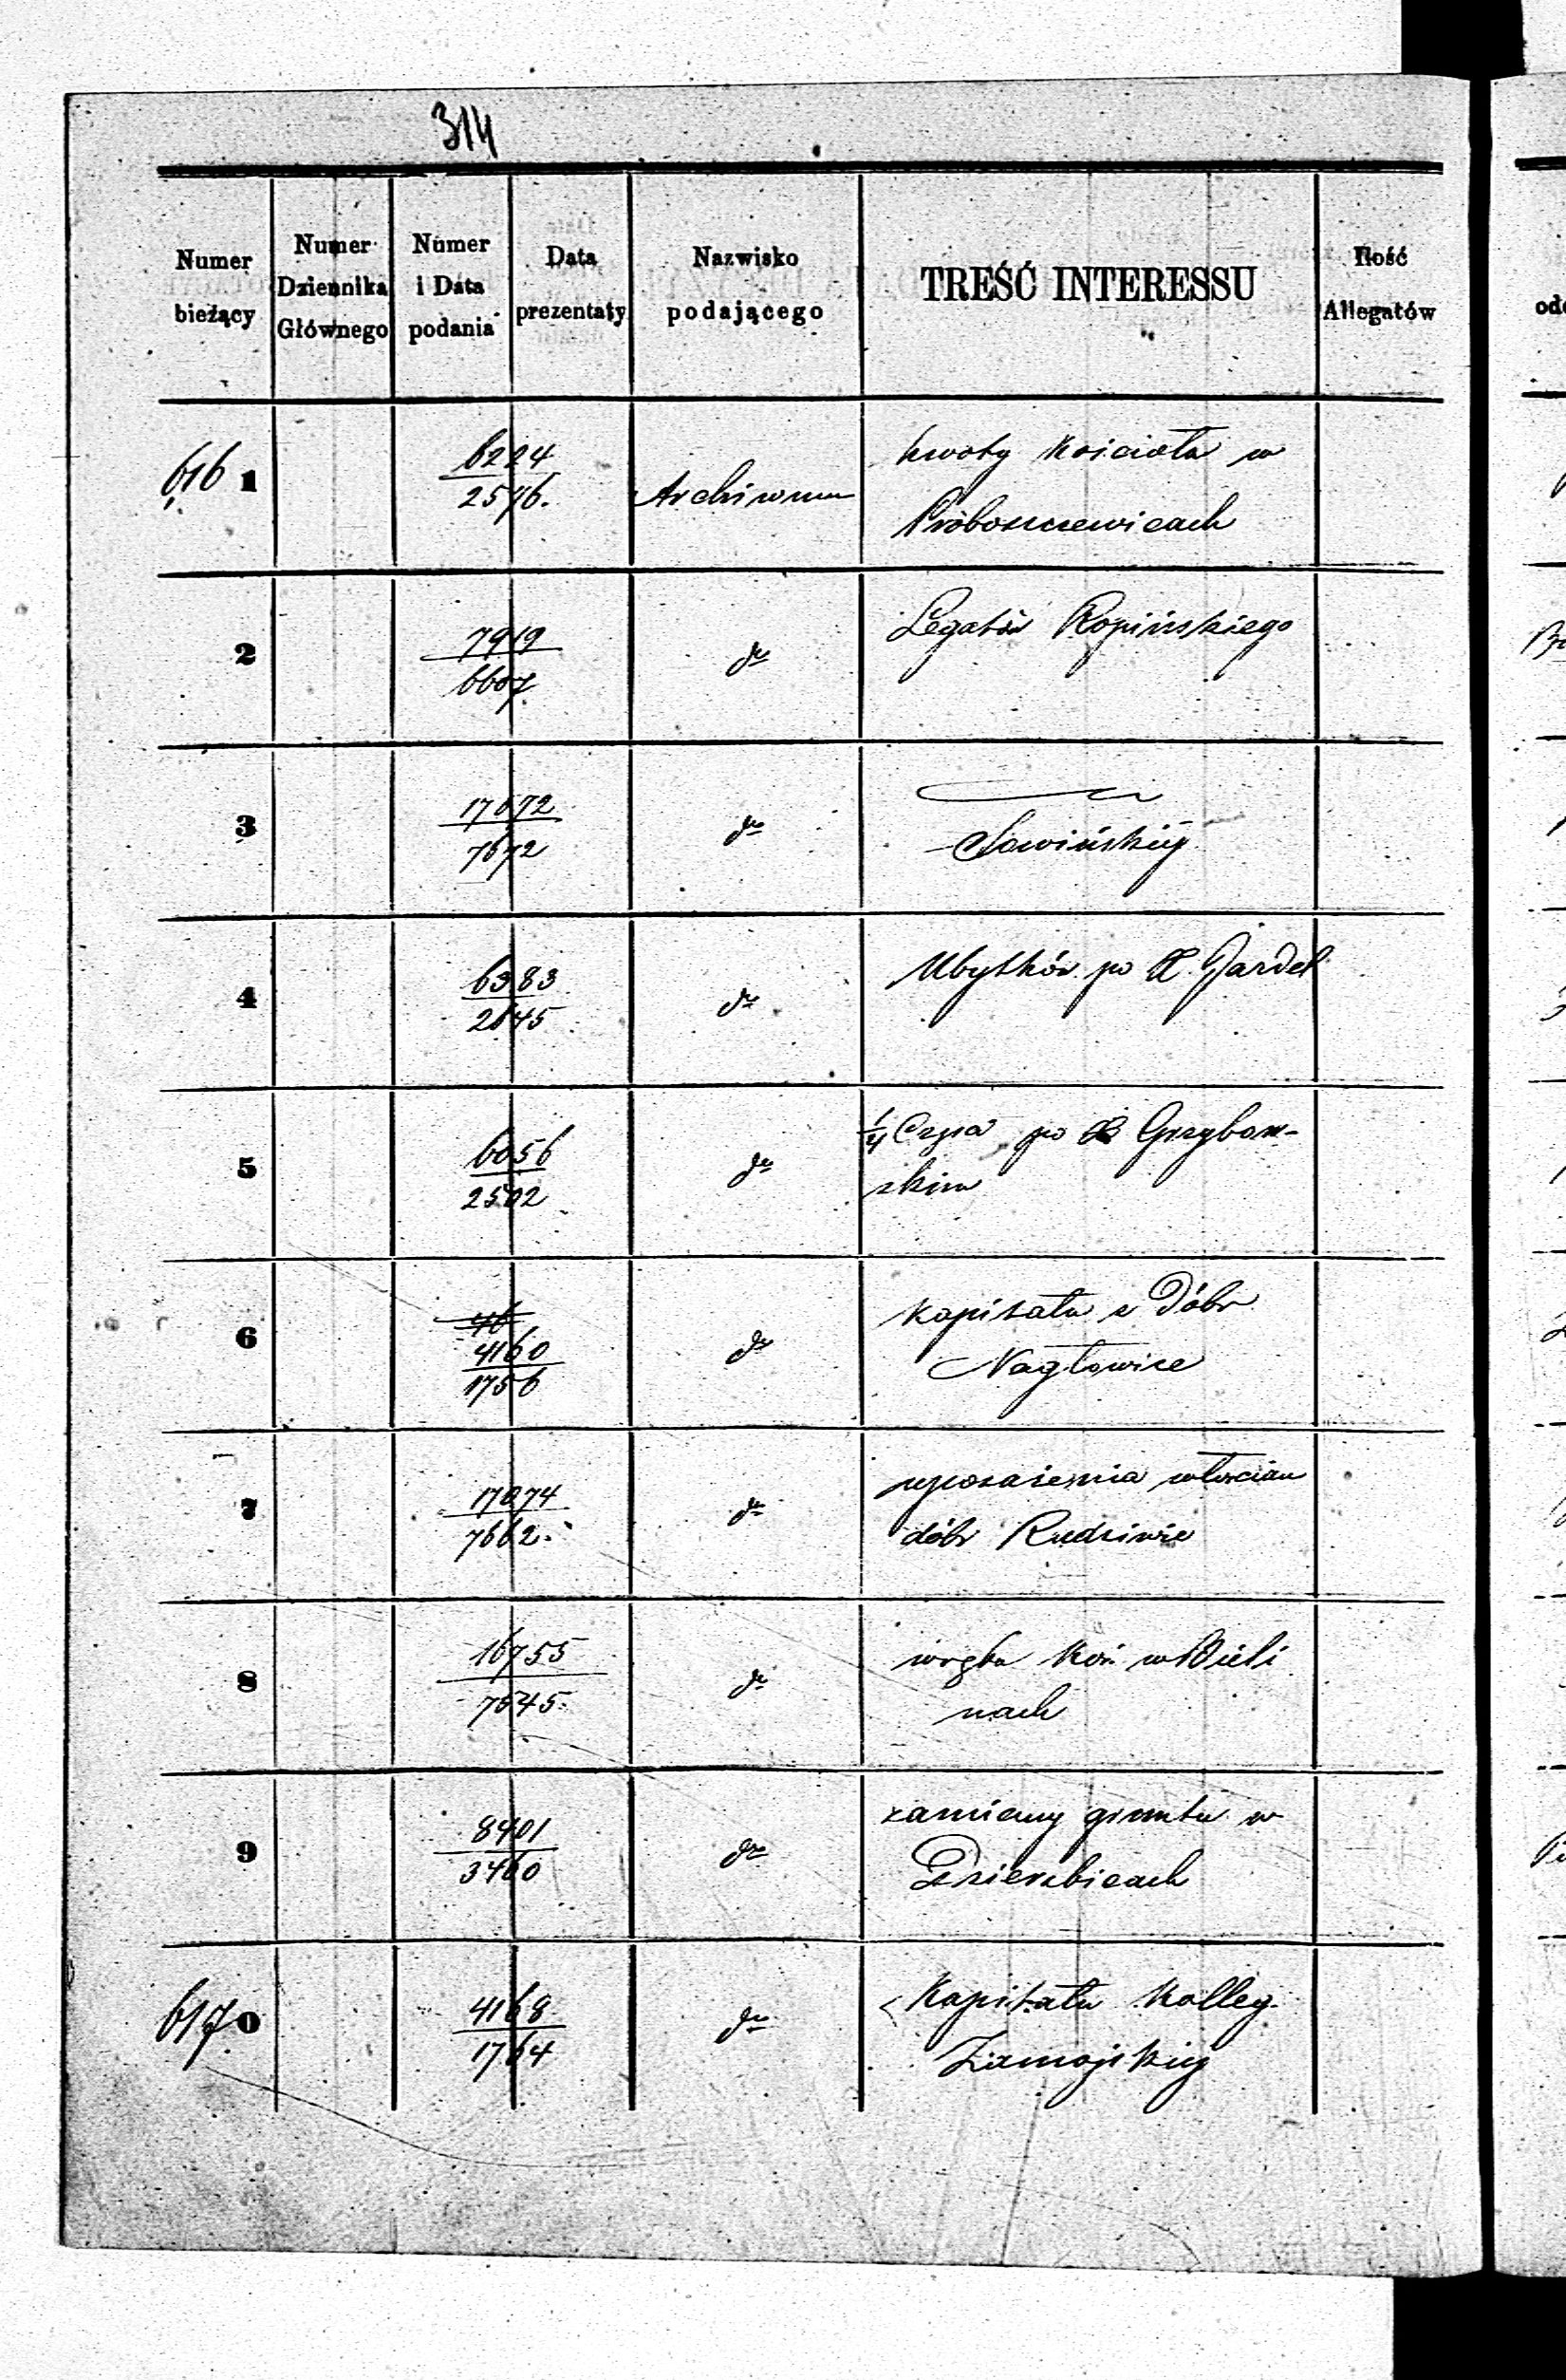 314
Numer bieżący
Numer Dziennika Głównego
Numer i Data podania
Data prezentaty
Nazwisko podającego
TREŚĆ INTERESSU
Ilość Allegatów
616 1
6224
2576.
Archiwum
kwoty kościoła w
Proboszczewicach
2
7919
6607
do
Legatów Ropińskiego
3
17672
7672
do
Sowińskiej
4
6383
2645
do
Ubytków po X. Gardel
5
6056
2502
do
1/4 Części po X Grzybow-
skim
6
46
4160
1756
do
kapitału z Dóbr
Nagłowice
7
17074
7662.
do
uposażenia włościan
dóbr
8
16755
7545.
do
wrębu koś. w Bieli
nach
9
8401
3460
do
zamiany gruntu w
Dzierzbicach
617 0
4168
1764
do
Kapitału Kolleg.
Zamojskiej